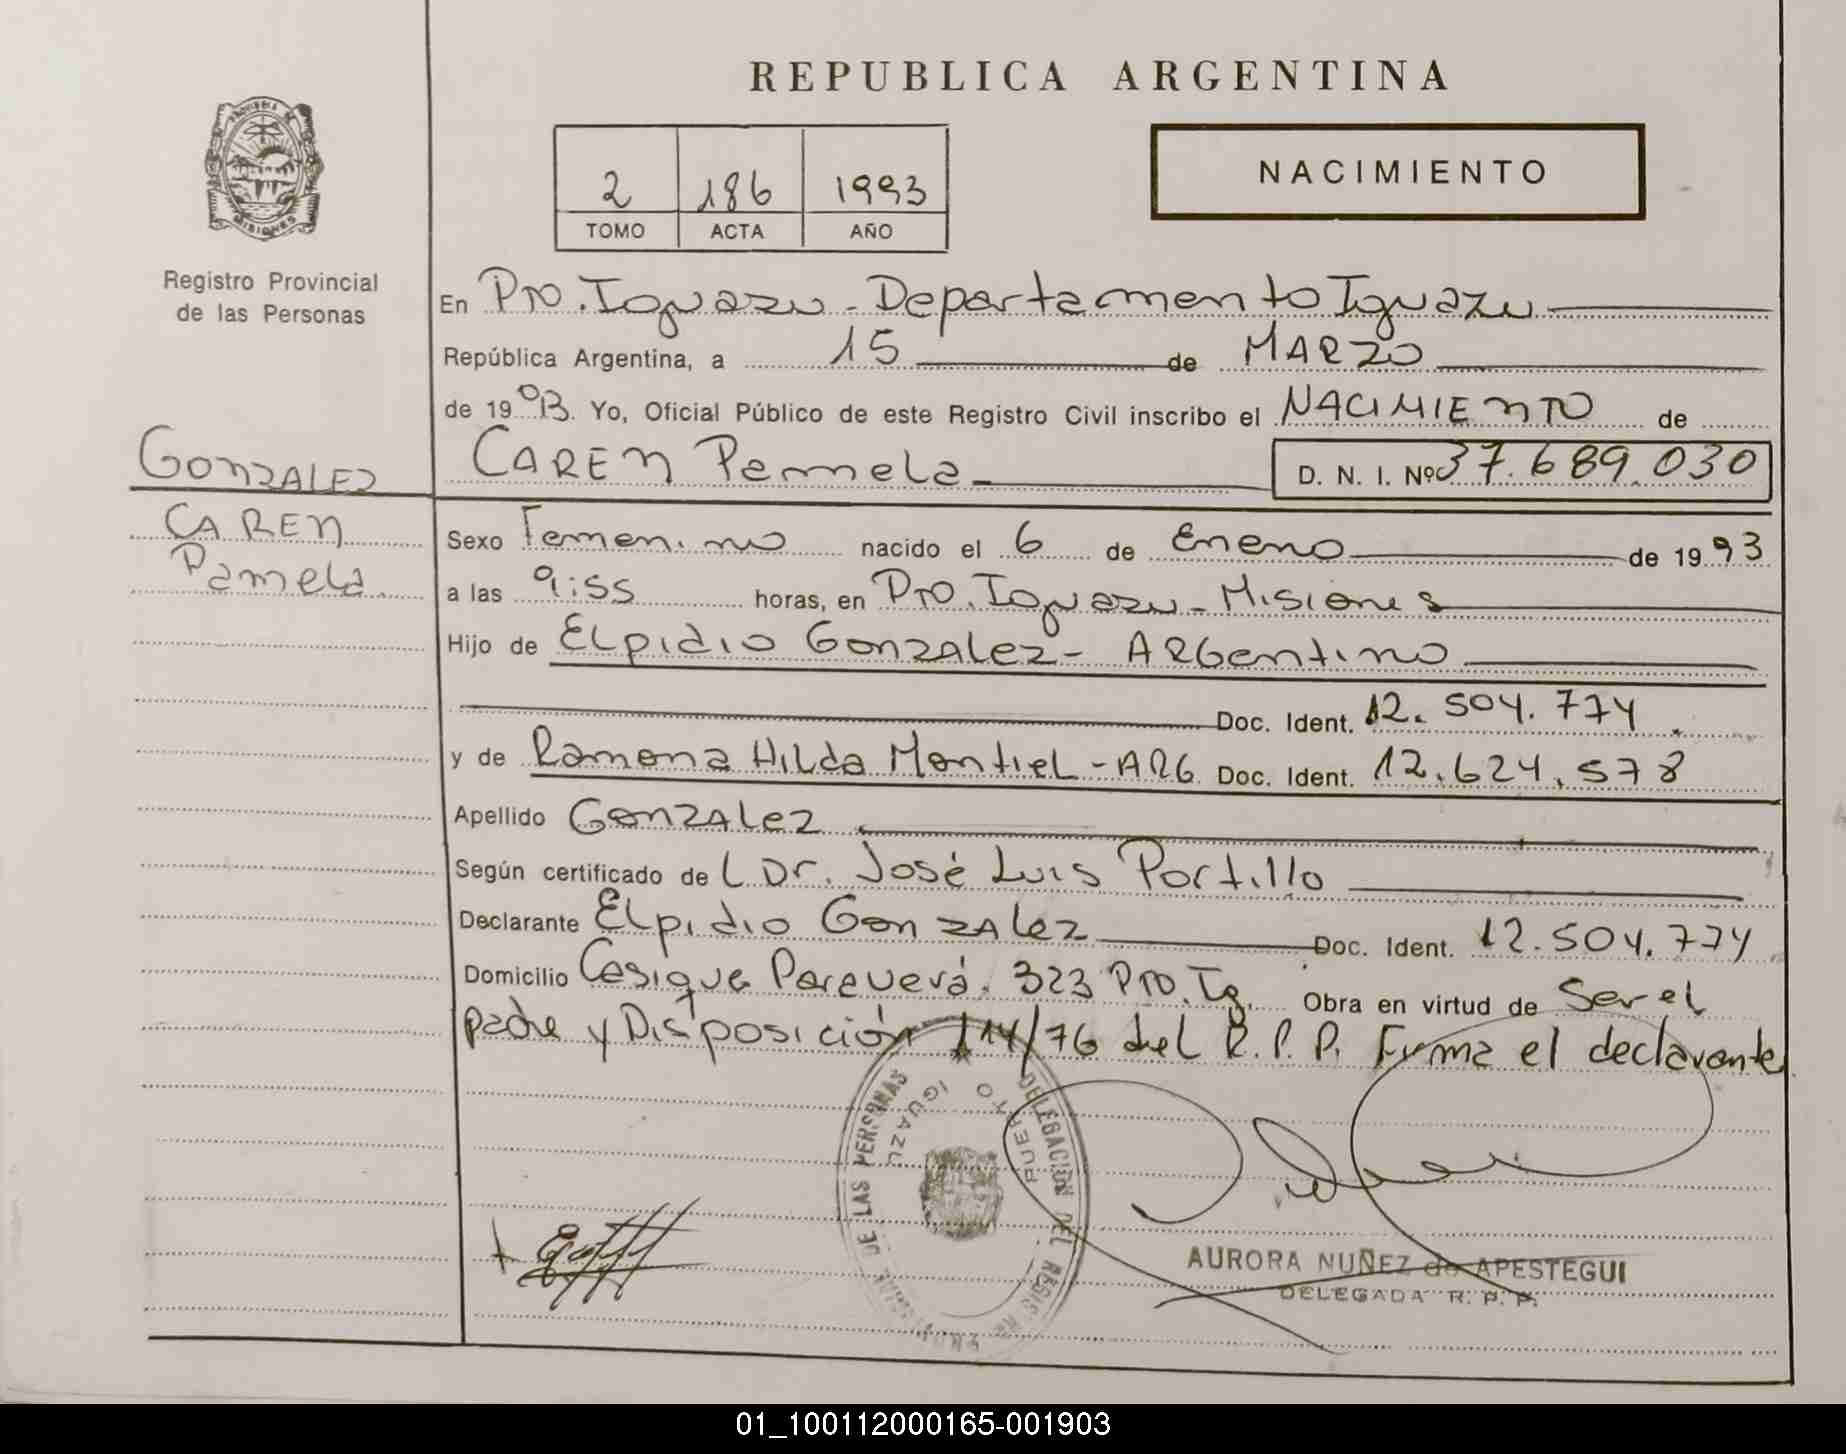 REPUBLICA ARGENTINA
NACIMIENTO
2 186 1993
TOMO ACTA AÑO
Registro Provincial
de las Personas
En Pto. Iguazu - Departamento Iguazu
República Argentina, a 15 de MARZO
de 1993. Yo, Oficial Público de este Registro Civil inscribo el NACIMIENTO de
CAREN Pamela D. N. I. Nº 37.689.030
GONZALEZ
CAREN
Pamela
Sexo Femenino nacido el 6 de Enero de 1993
a las 9:55 horas, en Pto. Iguazu - Misiones
Hijo de Elpidio Gonzalez - Argentino
Doc. Ident. 12.504.774
y de Ramona Hilda Montiel - ARG Doc. Ident. 12.624.578
Apellido GONZALEZ
Según certificado de L Dr. José Luis Portillo
Declarante Elpidio Gonzalez Doc. Ident. 12.504.774
Domicilio Casique Paraverá. 323 Pto. Ig. Obra en virtud de Ser el
padre y Disposición 114/76 del R.P.P. Firma el declarante
DELEGACION DEL REGISTRO PROVINCIAL DE LAS PERSONAS
PUERTO IGUAZU
AURORA NUÑEZ de APESTEGUI
DELEGADA R. P. P.
01_100112000165-001903